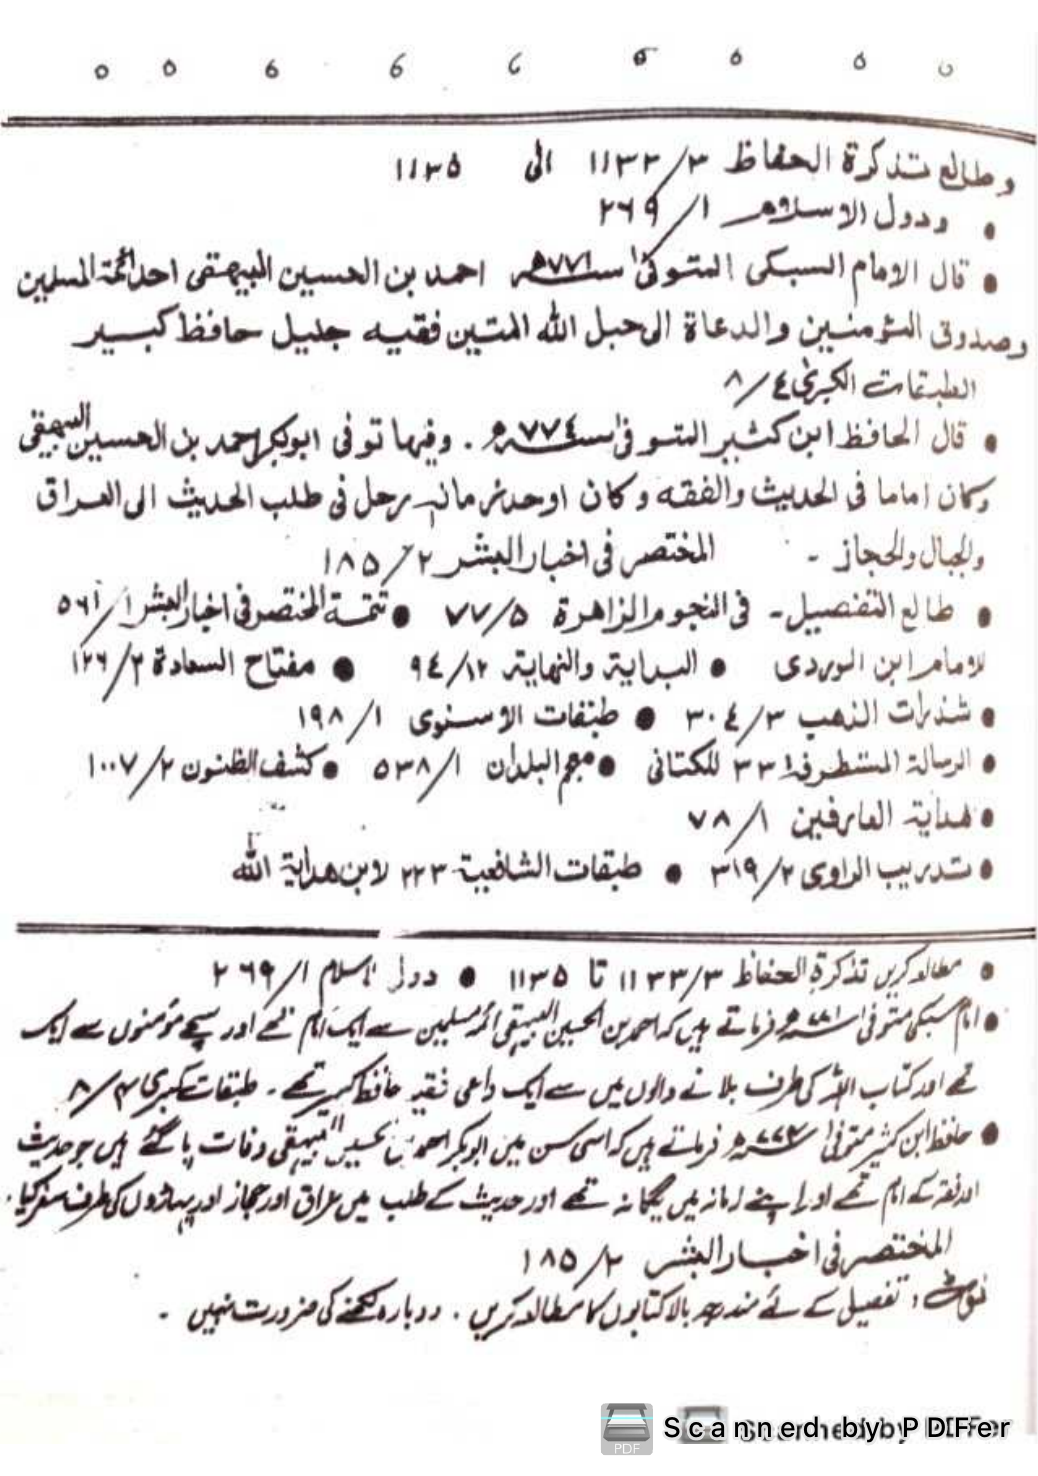 وطالع تذكرة الحفاظ ٣/١١٣٣ الى ١١٣٥
• ودول الاسلام ١/٢٦٩
• قال الامام السبكى المتوفىٰ سنہ٧٧١ھ احمد بن الحسين البيهقى احد ائمة المسلمين
وصدوق المؤمنين والدعاة الى حبل الله المتين فقيه جليل حافظ كبير
الطبقات الكبرىٰ ٤/٨
• قال الحافظ ابن كثير المتوفىٰ سنہ٧٧٤ھ . وفيها توفى ابوبكر احمد بن الحسين البيهقى
وكان اماما فى الحديث والفقه وكان اوحد زمانہ رحل فى طلب الحديث الى العراق
والجبال والحجاز - المختصر فى اخبار البشر ٢/١٨٥
• طالع التفصيل - فى النجوم الزاهرة ٥/٧٧ • تتمة المختصر فى اخبار البشر ١/٥٦١
للامام ابن الوردى • البداية والنهاية ١٢/٩٤ • مفتاح السعادة ٢/١٢٦
• شذرات الذهب ٣/٣٠٤ • طبقات الاسنوى ١/١٩٨
• الرسالة المستطرفة ٣٣ للكتانى • معجم البلدان ١/٥٣٨ • كشف الظنون ٢/١٠٠٧
• هداية العارفين ١/٧٨
• تدريب الراوى ٢/٣١٩ • طبقات الشافعية ٢٢٣ لابن هداية الله
• مطالعہ کریں تذکرۃ الحفاظ ٣/١١٣٣ تا ١١٣٥ • دول اسلام ١/٢٦٩
• امام سبکی متوفیٰ سنہ٧٧١ھ فرماتے ہیں کہ احمد بن الحسین البیہقی ائمہ مسلمین سے ایک امام تھے اور سچے مؤمنوں سے ایک
تھے اور کتاب اللہ کی طرف بلانے والوں میں سے ایک داعی فقیہ حافظ کبیر تھے - طبقات کبری ۴/٨
• حافظ ابن کثیر متوفیٰ سنہ٧٧۴ھ فرماتے ہیں کہ اسی سن میں ابوبکر احمد بن حسین البیہقی وفات پا گئے ہیں جو حدیث
اور فقہ کے امام تھے اور اپنے زمانہ میں یگانہ تھے اور حدیث کے طلب میں عراق اور حجاز اور پہاڑوں کی طرف سفر کیا .
المختصر فى اخبار البشر ٢/١٨٥
نوٹ : تفصیل کے لئے مندرجہ بالا کتابوں کا مطالعہ کریں . دوبارہ لکھنے کی ضرورت نہیں .
Scanned by PDFer